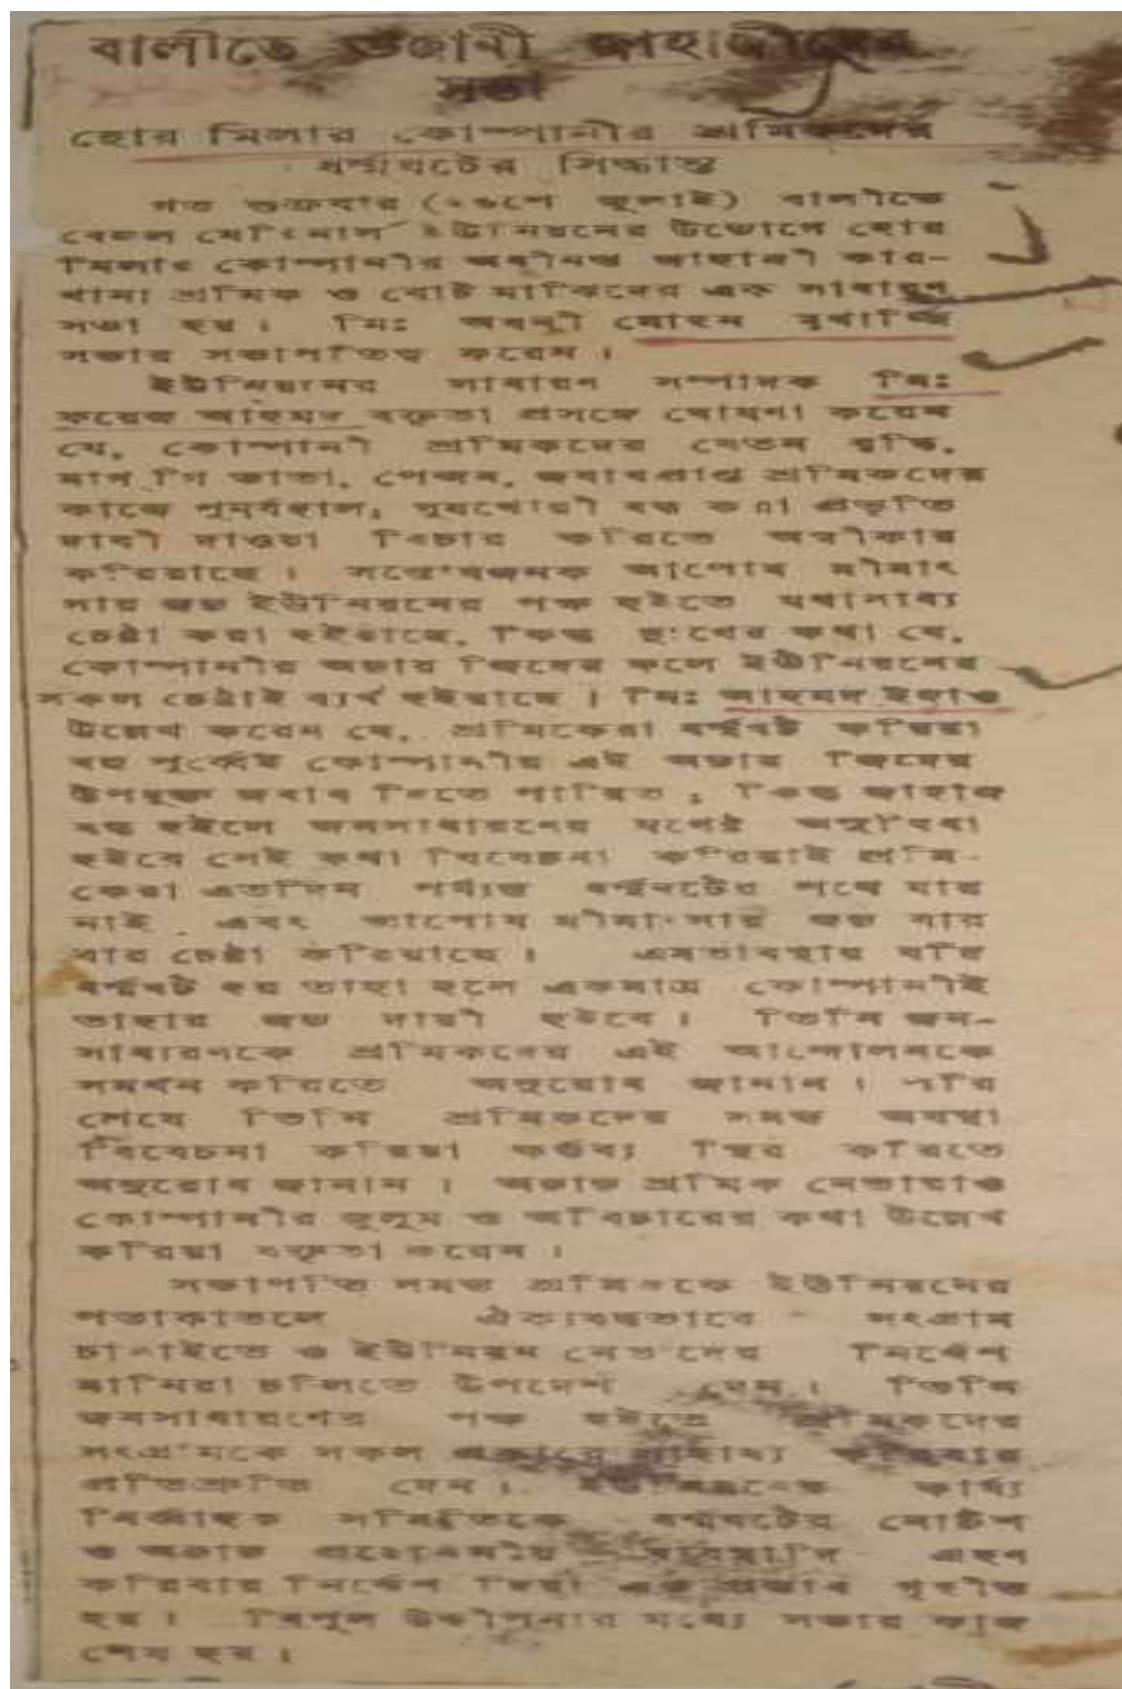 বালীতে জাহাজীদের
সভা
হোর মিলার কোম্পানীর শ্রমিকদের
ধর্ম্মঘটের সিদ্ধান্ত
গত শুক্রবার (২৬শে জুলাই) বালীতে
বেঙ্গল মেরিনার্স ইউনিয়নের উদ্যোগে হোর
মিলার কোম্পানীর অধীনস্থ জাহাজী কার-
খানা শ্রমিক ও বোট মাঝিদের এক সাধারণ
সভা হয়। মিঃ অবনী মোহন মুখার্জি
সভার সভাপতিত্ব করেন।
ইউনিয়নের সাধারণ সম্পাদক মিঃ
ফয়েজ আহমদ বক্তৃতা প্রসঙ্গে ঘোষণা করেন
যে, কোম্পানী শ্রমিকদের বেতন বৃদ্ধি,
মাগ্‌গি ভাতা, পেন্সন, জবাবপ্রাপ্ত শ্রমিকদের
কাজে পুনর্বহাল, ঘুষখোরী বন্ধ করা প্রভৃতি
দাবী দাওয়া বিচার করিতে অস্বীকার
করিয়াছে। সন্তোষজনক আপোষ মীমাং
সার জন্য ইউনিয়নের পক্ষ হইতে যথাসাধ্য
চেষ্টা করা হইয়াছে, কিন্তু দুঃখের কথা যে,
কোম্পানীর অন্যায় জিদের ফলে ইউনিয়নের
সকল চেষ্টাই ব্যর্থ হইয়াছে। মিঃ আহমদ ইহাও
উল্লেখ করেন যে, শ্রমিকেরা ধর্ম্মঘট করিয়া
বহু পূর্ব্বেই কোম্পানীর এই অন্যায় জিদের
উপযুক্ত জবাব দিতে পারিত, কিন্তু জাহাজ
বন্ধ হইলে জনসাধারণের যথেষ্ট অসুবিধা
হইবে সেই কথা বিবেচনা করিয়াই শ্রমি-
কেরা এতদিন পর্য্যন্ত ধর্ম্মঘটের পথে যায়
নাই এবং আপোষ মীমাংসার জন্য বার
বার চেষ্টা করিয়াছে। এমতাবস্থায় যদি
ধর্ম্মঘট হয় তাহা হলে একমাত্র কোম্পানীই
তাহার জন্য দায়ী হইবে। তিনি জন-
সাধারণকে শ্রমিকদের এই আন্দোলনকে
সমর্থন করিতে অনুরোধ জানান। পরি
শেষে তিনি শ্রমিকদের সমস্ত অবস্থা
বিবেচনা করিয়া কর্ত্তব্য স্থির করিতে
অনুরোধ জানান। অন্যান্য শ্রমিক নেতারাও
কোম্পানীর জুলুম ও অবিচারের কথা উল্লেখ
করিয়া বক্তৃতা করেন।
সভাপতি সমস্ত শ্রমিককে ইউনিয়নের
পতাকাতলে ঐক্যবদ্ধভাবে সংগ্রাম
চালাইতে ও ইউনিয়ন নেতাদের নির্দ্দেশ
মানিয়া চলিতে উপদেশ দেন। তিনি
জনসাধারণের পক্ষ হইতে শ্রমিকদের
সংগ্রামকে সকল প্রকারে সাহায্য করিবার
প্রতিশ্রুতি দেন। ইউনিয়নের কার্য্য
নির্ব্বাহক সমিতিকে ধর্ম্মঘটের নোটিশ
ও অন্যান্য প্রয়োজনীয় ব্যবস্থাদি গ্রহণ
করিবার নির্দ্দেশ দিয়া এক প্রস্তাব গৃহীত
হয়। বিপুল উদ্দীপনার মধ্যে সভার কাজ
শেষ হয়।